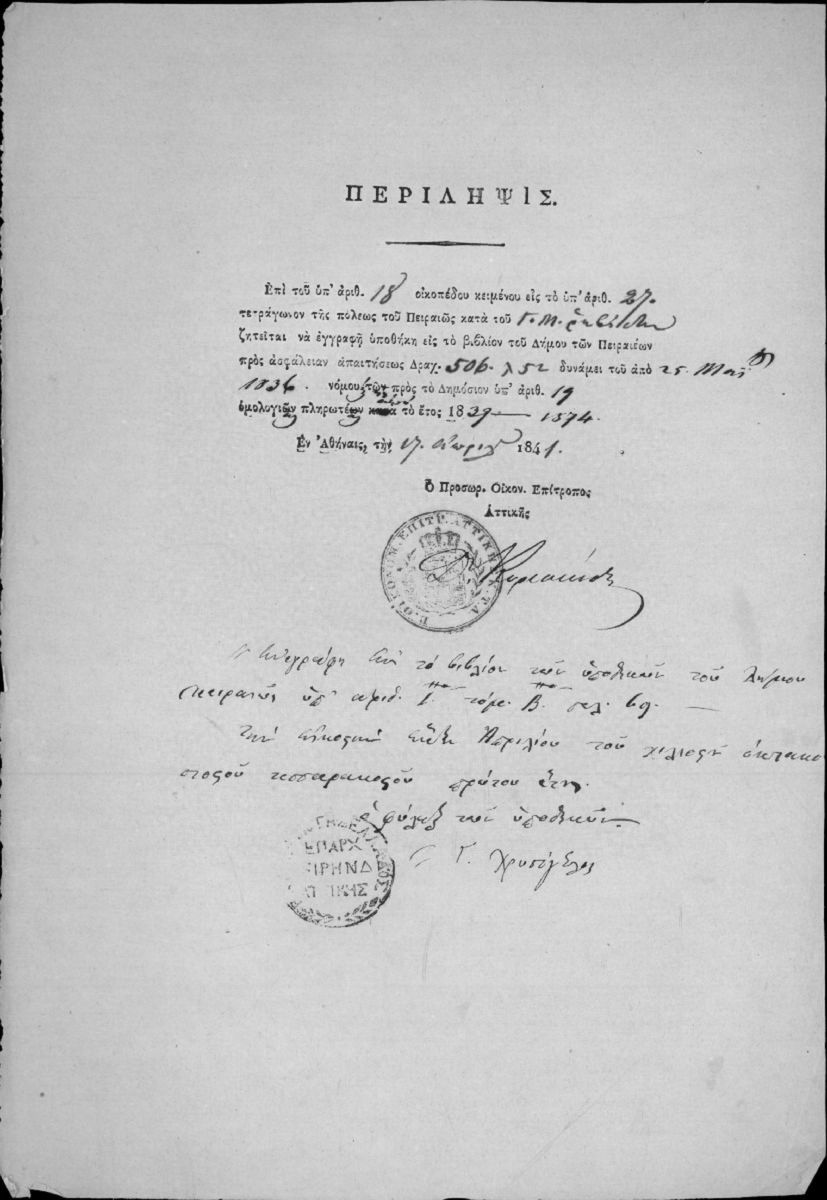 ΠΕΡΙΛΗΨΙΣ.
Ἐπὶ τοῦ ὑπ' ἀριθ. 18 οἰκοπέδου κειμένου εἰς τὸ ὑπ' ἀριθ. 27.
τετράγωνον τῆς πόλεως τοῦ Πειραιῶς κατὰ τοῦ Γ. Μ.
ζητεῖται νὰ ἐγγραφῇ ὑποθήκη εἰς τὸ βιβλίον τοῦ Δήμου τῶν Πειραιέων
πρὸς ἀσφάλειαν ἀπαιτήσεως Δραχ. 506. λ 52 δυνάμει τοῦ ἀπὸ 25 Μαΐου
1836. νόμου τῶν πρὸς τὸ Δημόσιον ὑπ' ἀριθ. 19
ὁμολογιῶν πληρωτέων τὸ ἔτος 1839 — 1874.
Ἐν Ἀθήναις, τὴν 17. Ἀπριλ 1841.
Ὁ Προσωρ. Οἰκον. Ἐπίτροπος
Ἀττικῆς
ΟΙΚΟΝΟΜ. ΕΠΙΤΡ. ΑΤΤΙΚΗΣ
Κυριακίδης
Ἐνεγράφη εἰς τὸ βιβλίον τῶν ὑποθηκῶν τοῦ Δήμου
Πειραιῶς ὑπ' ἀριθ. τόμ. Β. σελ. 69. —
Τὴν εἰκοστὴν Ἀπριλίου τοῦ χιλιοστοῦ ὀκτακο
σιοστοῦ τεσσαρακοστοῦ πρώτου ἔτους.
ὁ φύλαξ τῶν ὑποθηκῶν
ΕΠΑΡΧ
ΕΙΡΗΝΟΔ
ΑΤΤΙΚΗΣ
Γ. Χρυσάγελος